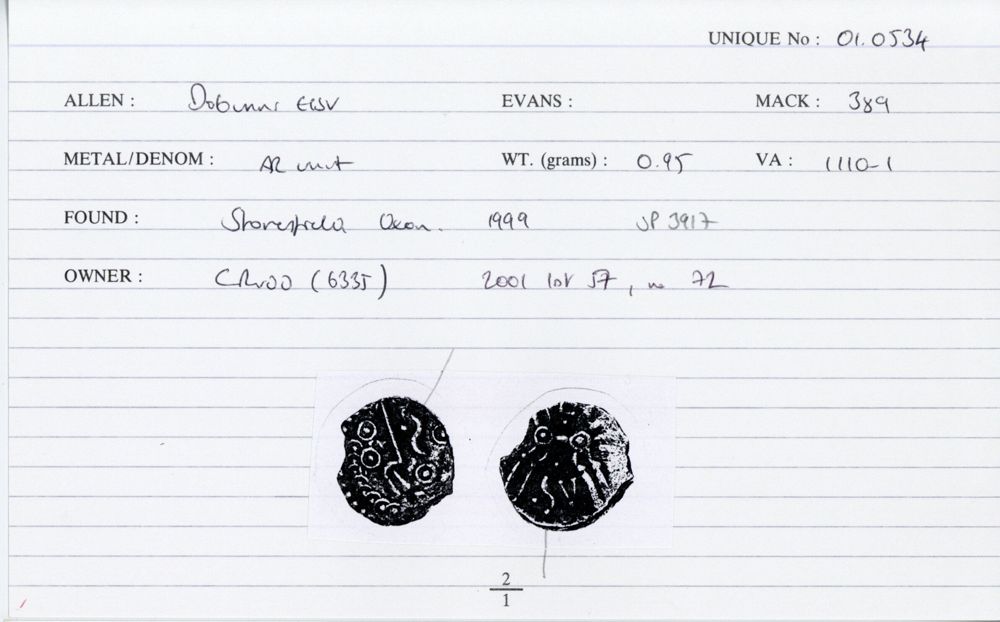 UNIQUE No : 01.0534
ALLEN : Dobunni EISV EVANS : MACK : 389
METAL/DENOM : AR unit WT. (grams) : 0.95 VA : 1110-1
FOUND : Stonesfield Oxon. 1999 SP 3917
OWNER : (6335) 2001 lot 57, no 72
2
1